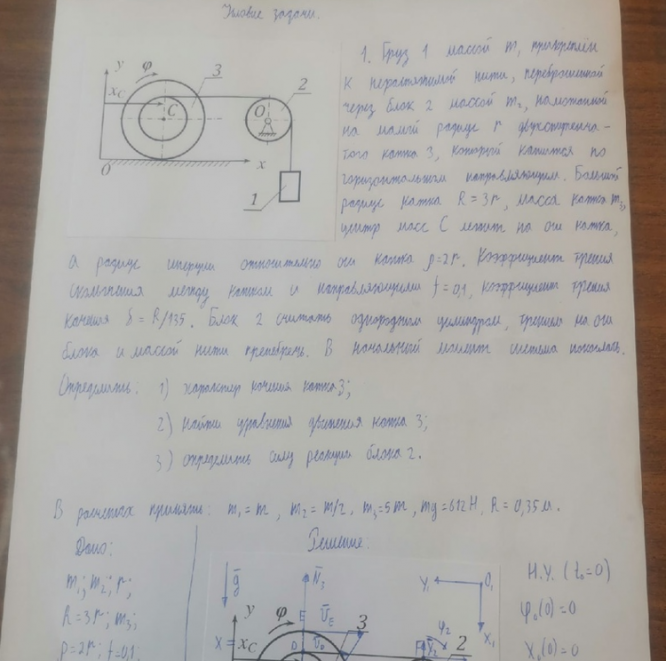 Условие задачи.
1. Груз 1 массой m₁ прикреплён
к нерастяжимой нити, переброшенной
через блок 2 массой m₂, намотанной
на малый радиус r двухступенча-
того катка 3, который катится по
горизонтальным направляющим. Большой
радиус катка R = 3r, масса катка m₃,
центр масс C лежит на оси катка,
а радиус инерции относительно оси катка ρ = 2r. Коэффициент трения
скольжения между катком и направляющими f = 0,1, коэффициент трения
качения δ = R/135. Блок 2 считать однородным цилиндром, трением на оси
блока и массой нити пренебречь. В начальный момент система покоилась.
Определить: 1) характер качения катка 3;
2) найти уравнения движения катка 3;
3) определить силу реакции блока 2.
В расчетах принять: m₁ = m, m₂ = m/2, m₃ = 5m, mg = 612 Н, R = 0,35 м.
y
φ
3
2
x_C
C
O
O
x
1
Дано:
m₁; m₂; r;
R = 3r; m₃;
ρ = 2r; f = 0,1
Решение:
g
N₃
y
φ
E
3
X = x_C
Y₁
O₁
X₁
φ₂
2
Н.У. (t₀ = 0)
φ₀(0) = 0